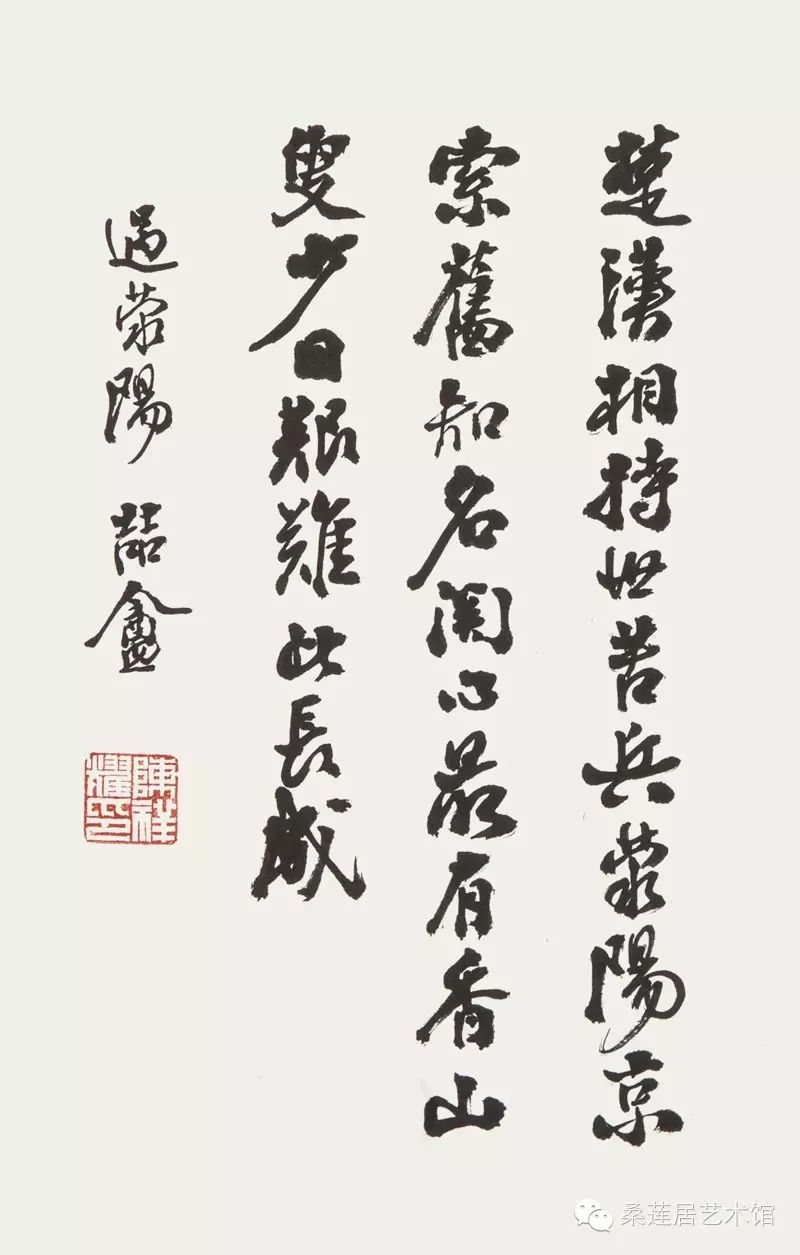 楚漢相持世苦兵滎陽京
索舊知名関心最有香山
叟少日艱難此長成
過滎陽 喆盦
陳祥
耀印
桑莲居艺术馆